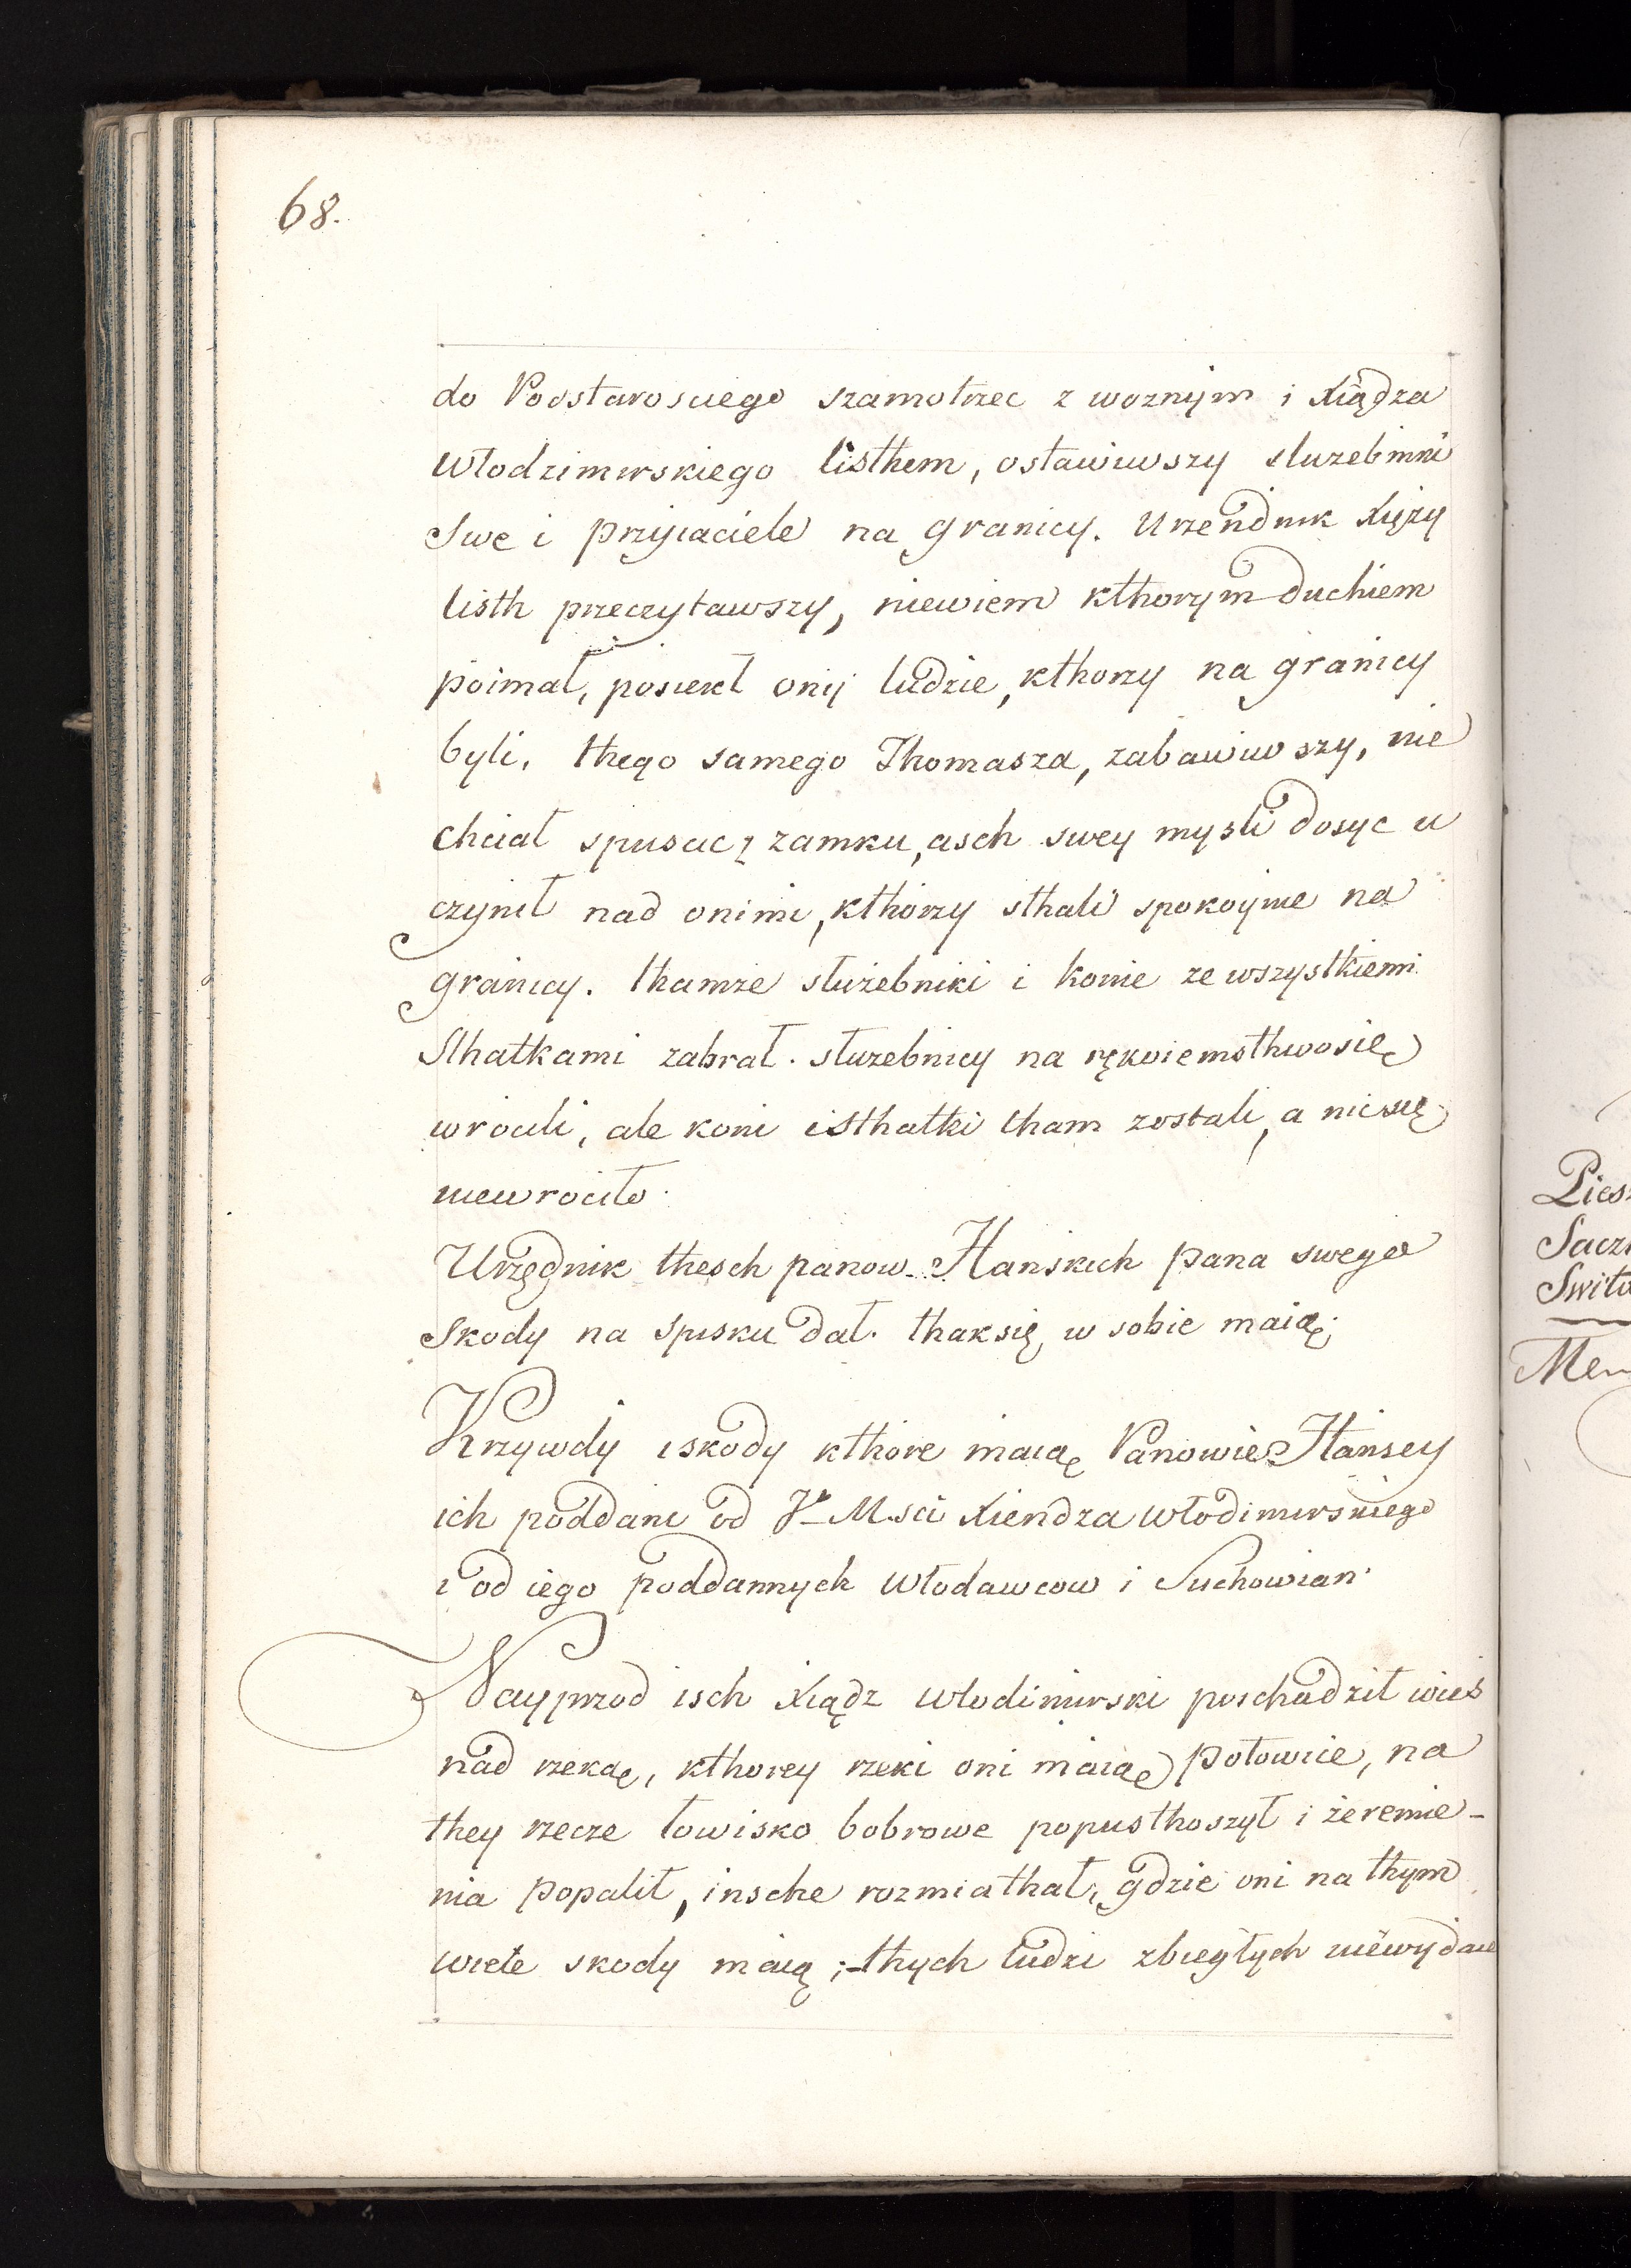 68.
do Podstarosciego szamotrzec z woznym i Xiądza
Włodzimirskiego listhem, ostawiwszy sluzebniki
Swe i przyiaciele na granicy. Urzendnik Xięzy
listh przeczytawszy, niewiem kthorym duchiem
poimał, posiekł onij ludzie, kthorzy na granicy
byli, thego samego Thomasza, zabawiwszy, nie
chciał spuscic z zamku, asch swey mysli dosyc u
czynił nad onimi, kthorzy sthali spokoynie na
granicy. thamze służebniki i konie ze wszystkiemi
Sthatkami zabrał. służebnicy na rękoiemsthwosię
wrocili, ale koni isthatki tham zostali, a nic się
niewrociło.
Urzędnik thesch panow Hanskich pana swego
Skody na spisku dał. thak się w sobie maią;
Krzywdy iskody kthore maią Panowie Hansey
ich poddani od Je M.sci Xiendza Włodimirskiego
i od iego poddannych Włodawcow i Suchowian.
Nayprzod isch Xiądz Włodimirski poschadził wieś
nad rzeką, kthorey rzeki oni maią połowie, na
they rzecze łowisko bobrowe popusthoszył i żeremie-
nia popalił, insche rozmiathał, gdzie oni na thym
wiele skody maią; thych ludzi zbiegłych niewydaie
Mem